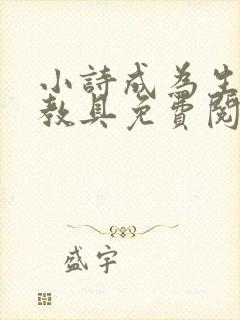 小詩成為生
教具免費閱
盛宇